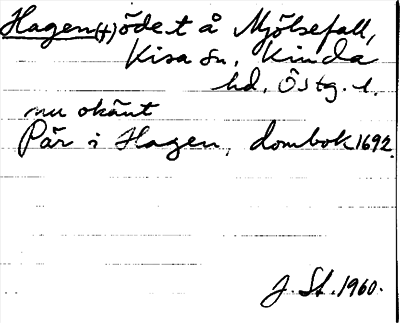 Hagen(†) öde.t å Mjölsefall,
Kisa sn, Kinda
hd, Östg. l.
nu okänt
Pär i Hagen, dombok 1692.
J. St. 1960.